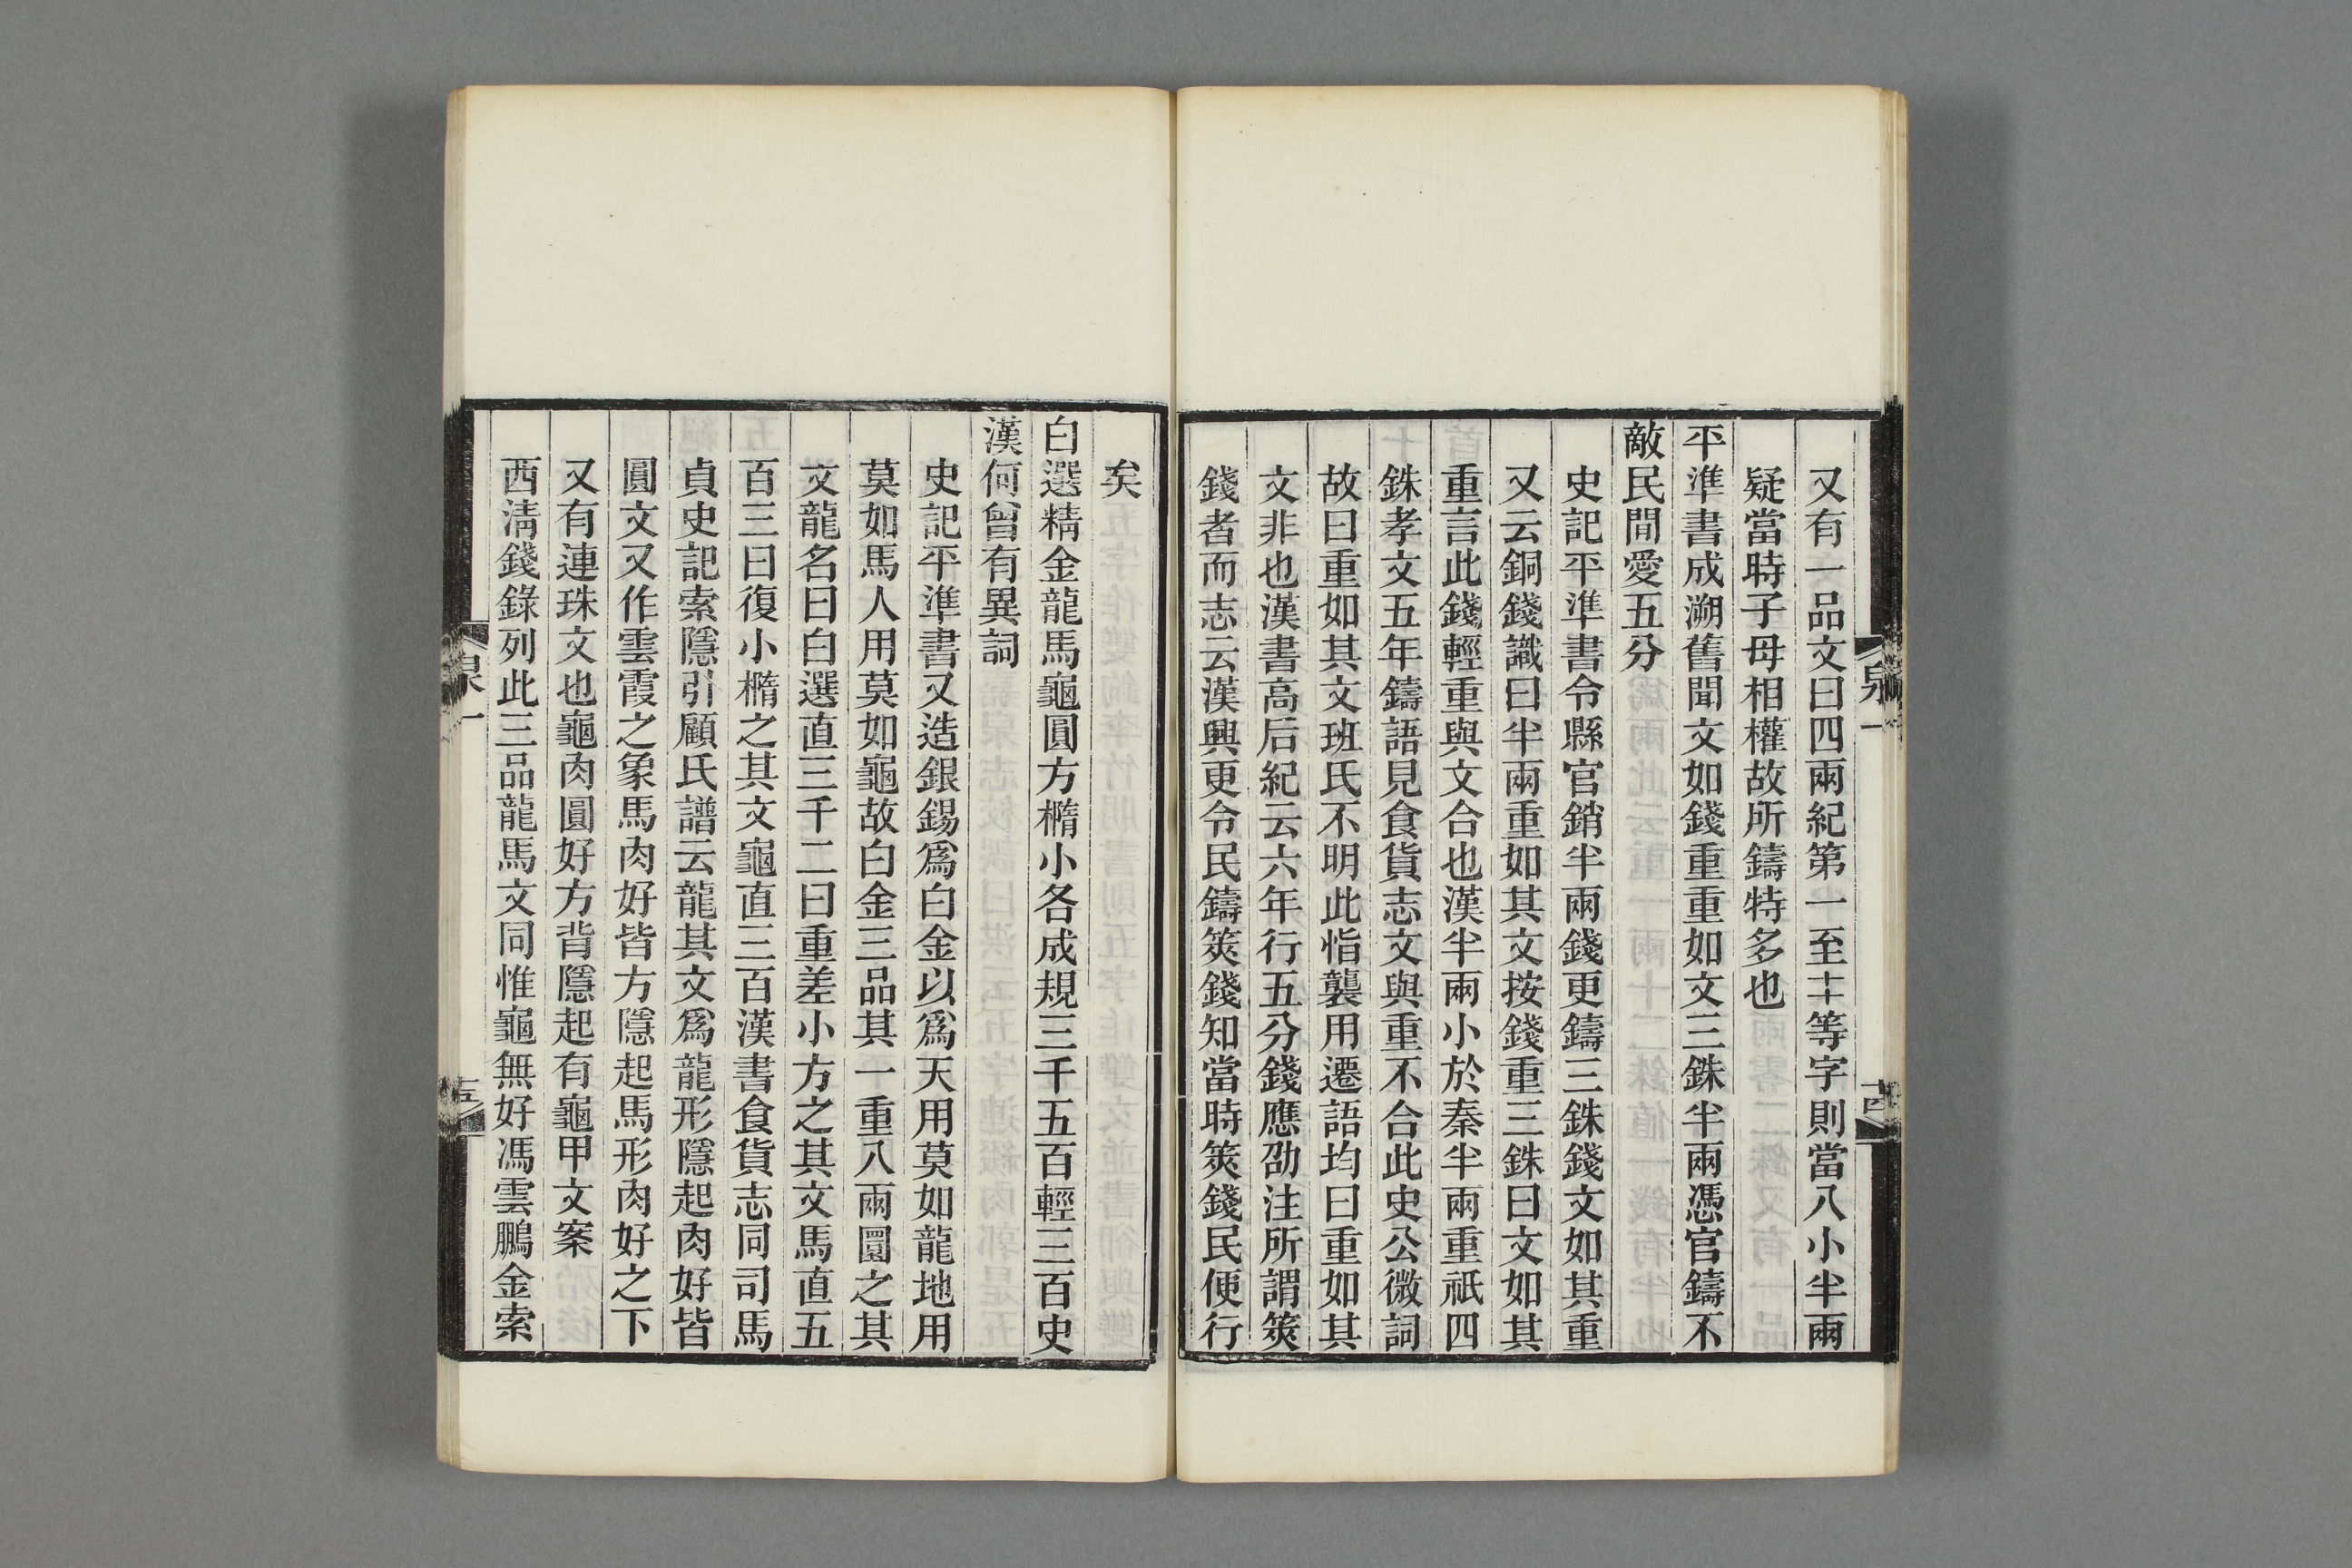 又有一品文曰四兩紀第一至十十等字則當八小半兩
疑當時子母相權故所鑄特多也
平準書成溯舊聞文如錢重重如文三銖半兩憑官鑄不
敵民間愛五分
史記平準書令縣官銷半兩錢更鑄三銖錢文如其重
又云銅錢識曰半兩重如其文按錢重三銖曰文如其
重言此錢輕重與文合也漢半兩小於秦半兩重祇四
銖孝文五年鑄語見食貨志文與重不合此史公微詞
故曰重如其文班氏不明此恉襲用遷語均曰重如其
文非也漢書高后紀云六年行五分錢應劭注所謂筴
錢者而志云漢興更令民鑄筴錢知當時筴錢民便行
泉一
古
矣
白選精金龍馬龜圓方橢小各成規三千五百輕三百史
漢何曾有異詞
史記平準書又造銀錫爲白金以爲天用莫如龍地用
莫如馬人用莫如龜故白金三品其一重八兩圜之其
文龍名曰白選直三千二曰重差小方之其文馬直五
百三曰復小橢之其文龜直三百漢書食貨志同司馬
貞史記索隱引顧氏譜云龍其文爲龍形隱起肉好皆
圓文又作雲霞之象馬肉好皆方隱起馬形肉好之下
又有連珠文也龜肉圓好方背隱起有龜甲文案
西淸錢錄列此三品龍馬文同惟龜無好馮雲鵬金索
泉一